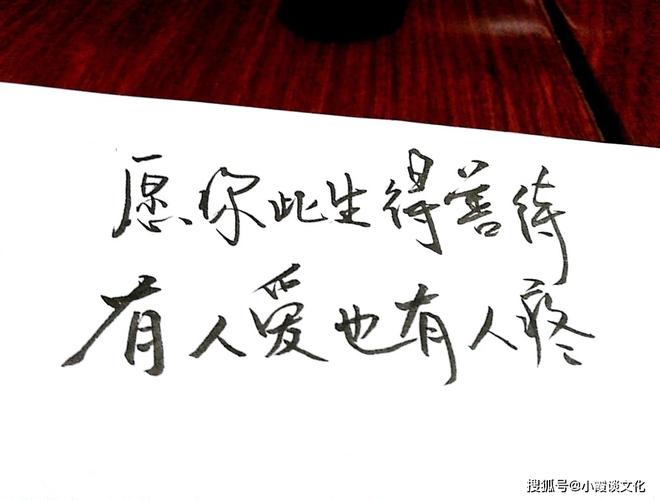 愿你此生得善待
有人爱也有人疼
搜狐号@小霞谈文化